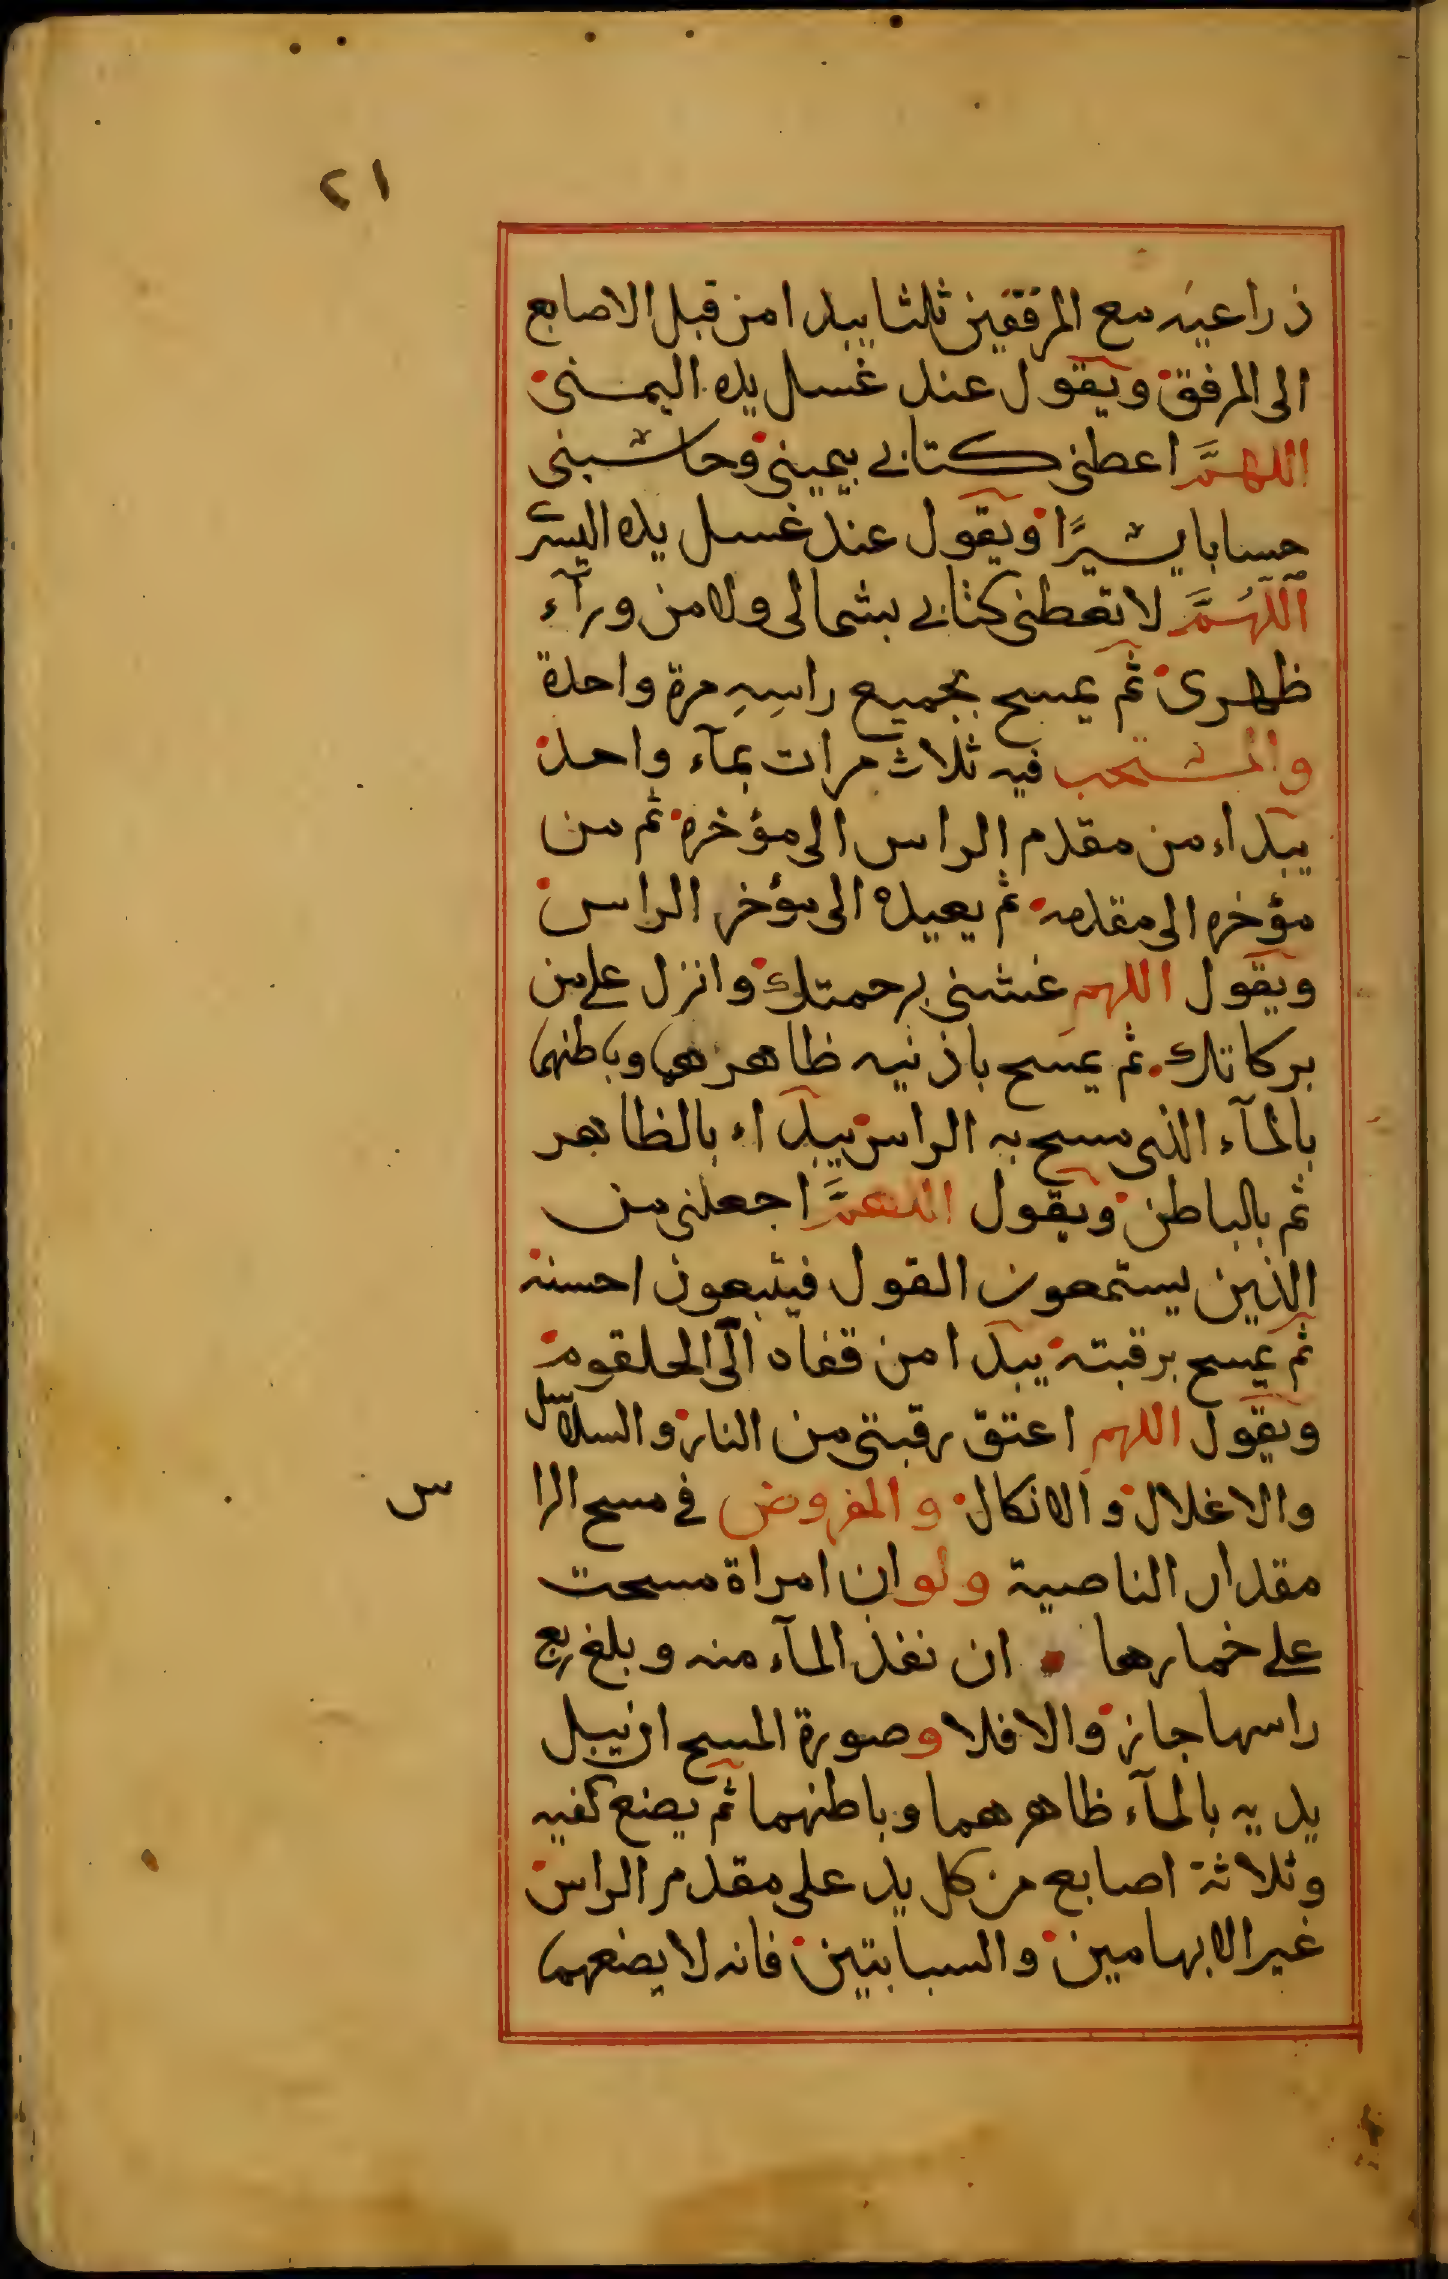 ٢١
ذراعيه مع المرفقين ثلثا يبدا من قبل الاصابع
الى المرفق ويقول عند غسل يده اليمنى
اللهمَّ اعطنى كتابى بيمينى وحاسبنى
حسابا يسيرًا ويقول عند غسل يده اليسرى
اللهُمَّ لا تعطنى كتابى بشمالى ولا من ورآء
ظهرى ثم يمسح بجميع راسِهِ مرة واحدة
والمستحب فيه ثلاث مرات بمآء واحد
يبداء من مقدم الراس الى مؤخره ثم من
مؤخره الى مقدمه ثم يعيده الى مؤخر الراس
ويقول اللهم غشنى برحمتك وانزل على من
بركاتك ثم يمسح باذنيه ظاهرهما وباطنهما
بالمآء الذى مسح به الراس يبداء بالظاهر
ثم بالباطن ويقول اللهمَّ اجعلنى من
الذين يستمعون القول فيتبعون احسنه
ثم يمسح برقبته يبدا من قفاه الى الحلقوم
ويقول اللهم اعتق رقبتى من النار والسلاسل
والاغلال والانكال والمفروض فى مسح الرا
س
مقدار الناصية ولو ان امراة مسحت
على خمارها ان نفذ المآء منه وبلغ ربع
راسها جاز والا فلا وصورة المسح ان يبل
يديه بالمآء ظاهرهما وباطنهما ثم يضع كفيه
وثلاثة اصابع من كل يد على مقدم الراس
غير الابهامين والسبابتين فانه لا يضعهما